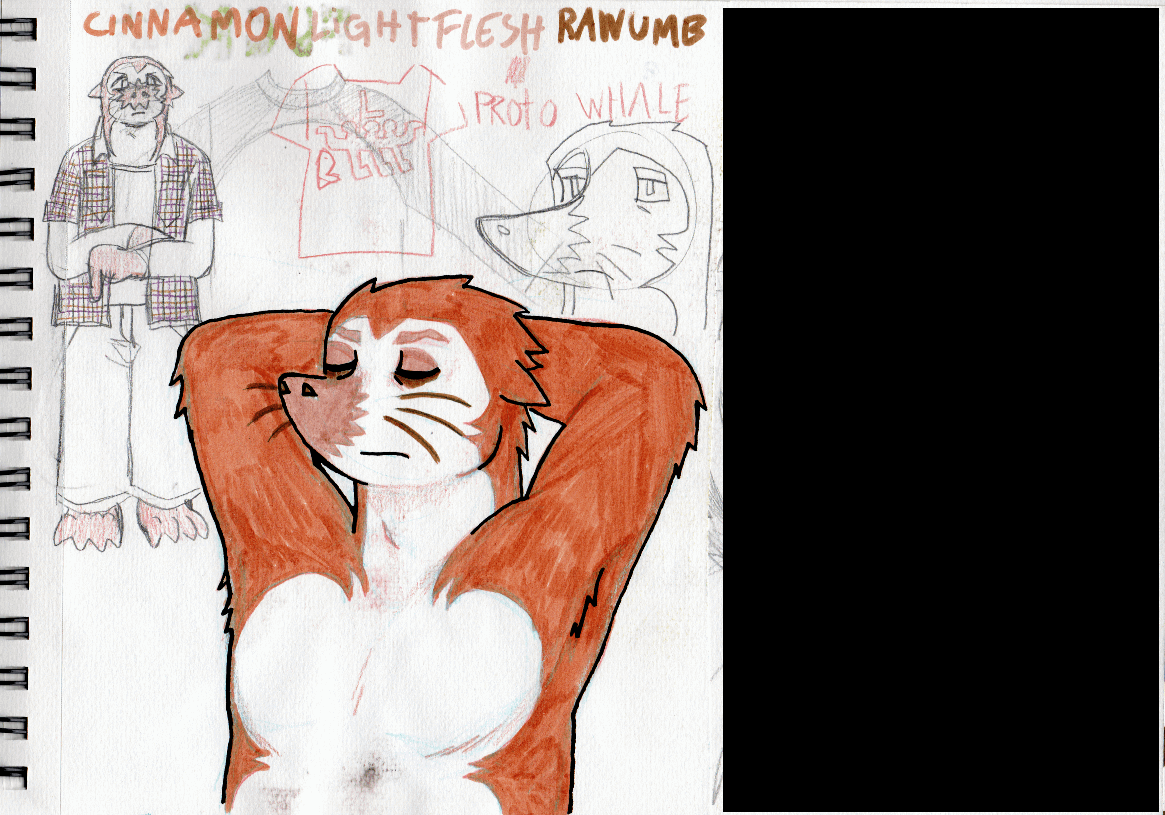 CINNAMON LIGHT FLESH RAWUMB
PROTO WHALE